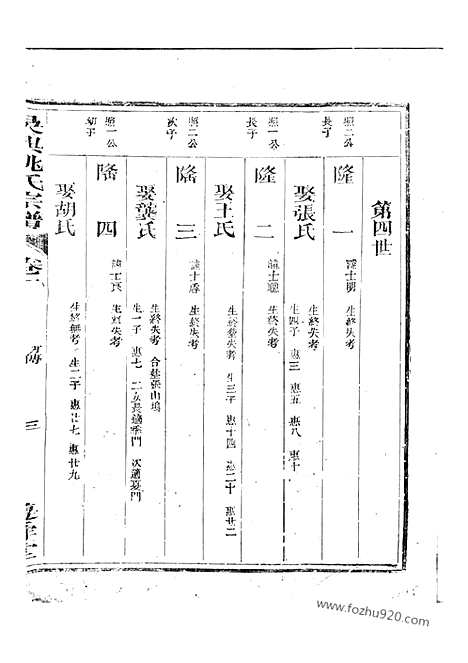 第四世
照二公
長子
隆一
諱士明 生終失考
娶張氏
生終失考
生四子 惠三 惠五 惠八 惠十
照一公
長子
隆二
諱士聰 生終失考
娶王氏
生終塟失考 生三子 惠十四 惠二十 惠廿二
照二公
次子
隆三
諱士 生終失考
娶龔氏
生終失考 合塟張山塢
生一子 惠七 二女長適季門 次適 門
照一公
幼子
隆四
諱士良 生終失考
娶胡氏
生終無考 生二子 惠廿七 惠廿九
吳興姚氏宗譜
卷二
三
www.fozhu920.com